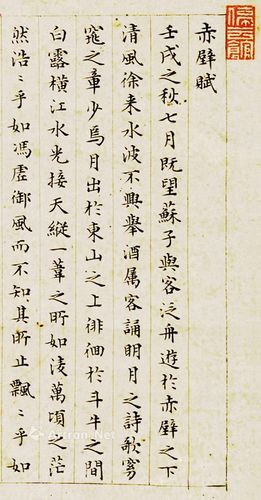 赤壁賦
壬戌之秋七月既望蘇子與客泛舟遊於赤壁之下
清風徐来水波不興舉酒属客誦明月之詩歌窈
窕之章少焉月出於東山之上徘徊於斗牛之間
白露橫江水光接天縱一葦之所如淩萬頃之茫
然浩〻乎如馮虛御風而不知其所止飄〻乎如